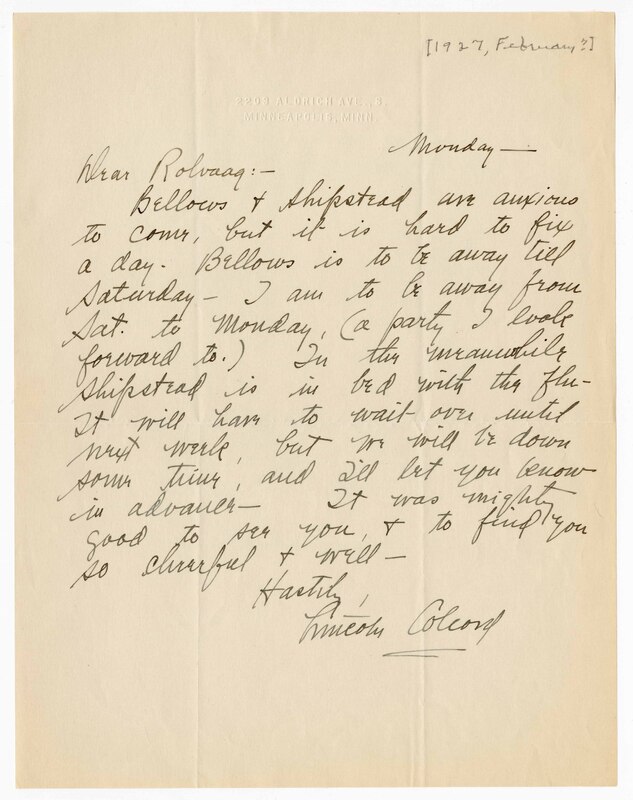 [1927, February?]
2209 ALDRICH AVE., S.
MINNEAPOLIS, MINN.
Monday —
Dear Rolvaag:-
Bellows & Shipstead are anxious
to come, but it is hard to fix
a day. Bellows is to be away till
Saturday — I am to be away from
Sat. to Monday, (a party I look
forward to.) In the meanwhile
Shipstead is in bed with the flu-
It will have to wait over until
next week, but we will be down
some time, and I'll let you know
in advance — It was mighty
good to see you, & to find you
so cheerful & well —
Hastily,
Lincoln Colcord